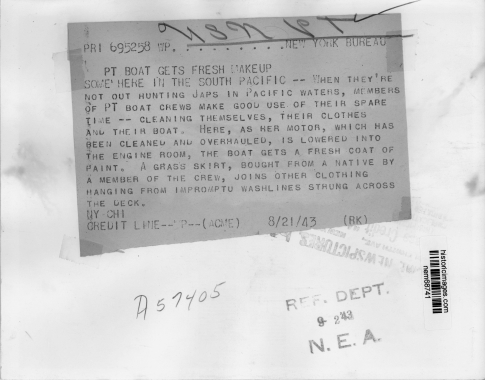 PRI 695258 WP. . . . . . . . . . NEW YORK BUREAU
PT BOAT GETS FRESH MAKEUP
SOMEWHERE IN THE SOUTH PACIFIC -- WHEN THEY'RE
NOT OUT HUNTING JAPS IN PACIFIC WATERS, MEMBERS
OF PT BOAT CREWS MAKE GOOD USE OF THEIR SPARE
TIME -- CLEANING THEMSELVES, THEIR CLOTHES
AND THEIR BOAT. HERE, AS HER MOTOR, WHICH HAS
BEEN CLEANED AND OVERHAULED, IS LOWERED INTO
THE ENGINE ROOM, THE BOAT GETS A FRESH COAT OF
PAINT. A GRASS SKIRT, BOUGHT FROM A NATIVE BY
A MEMBER OF THE CREW, JOINS OTHER CLOTHING
HANGING FROM IMPROMPTU WASHLINES STRUNG ACROSS
THE DECK.
NY CHI
CREDIT LINE--WP--(ACME) 8/21/43 (RK)
NEWSPICTURES
A57405
REF. DEPT.
N. E. A.
historicimages.com
nem68741